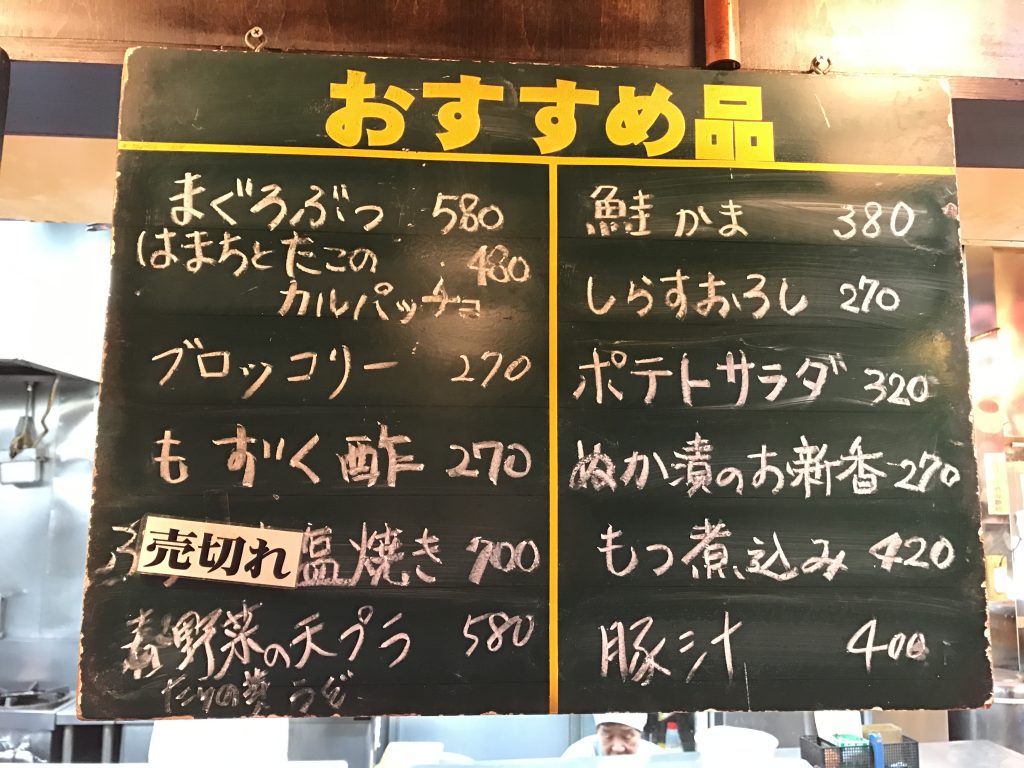 おすすめ品
まぐろぶつ 580
はまちとたこの 480
カルパッチョ
ブロッコリー 270
もずく酢 270
売切れ 塩焼き 700
春野菜の天プラ 580
たらの芽 うど
鮭かま 380
しらすおろし 270
ポテトサラダ 320
ぬか漬のお新香 270
もつ煮込み 420
豚汁 400